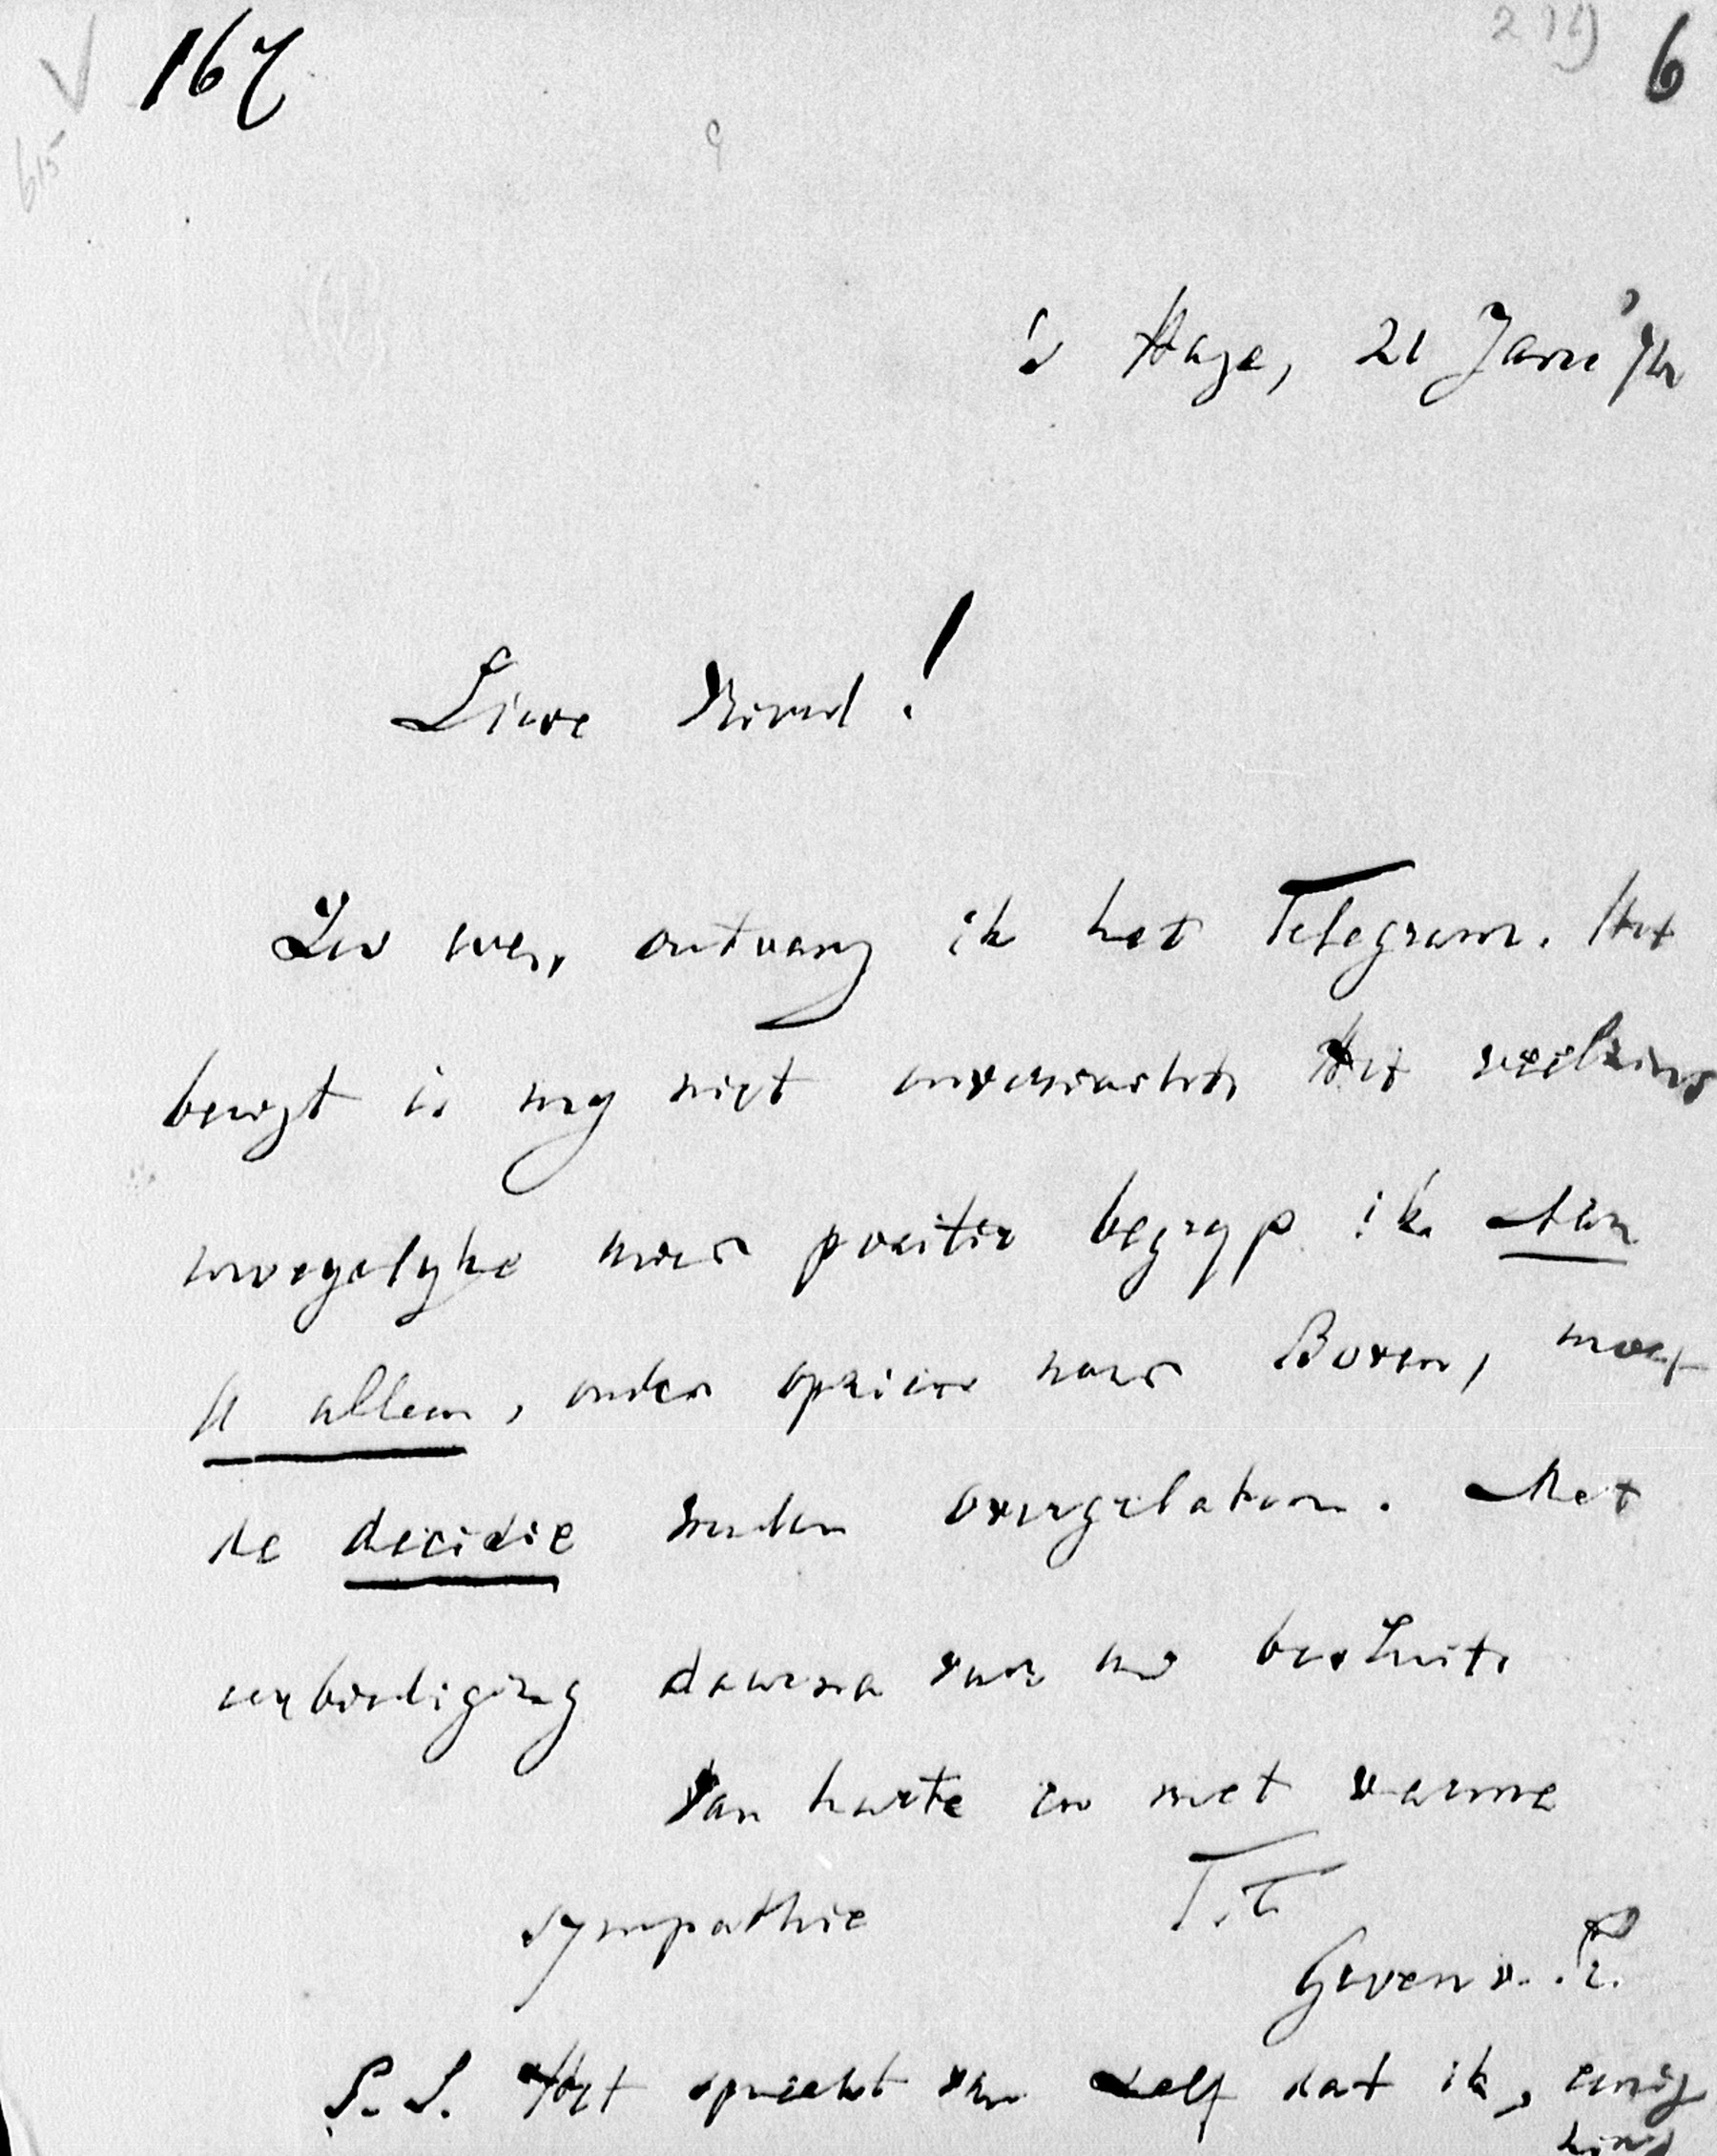 167
6
615
9
's Hage, 21 Janu
Lieve Vriend!
Zoo even ontvang ik het Telegram. Het
berigt is my niet onverwacht. Het
mogelyke uwer positie begryp ik. Aan
U alleen, onder opzien naar Boven, moet
de decisie worden overgelaten. Met
eerbiediging daarna van uw besluit.
Van harte en met warme
sympathie T.t.
Groen v. Pr.
P.S. Het spreekt van zelf dat ik, enig